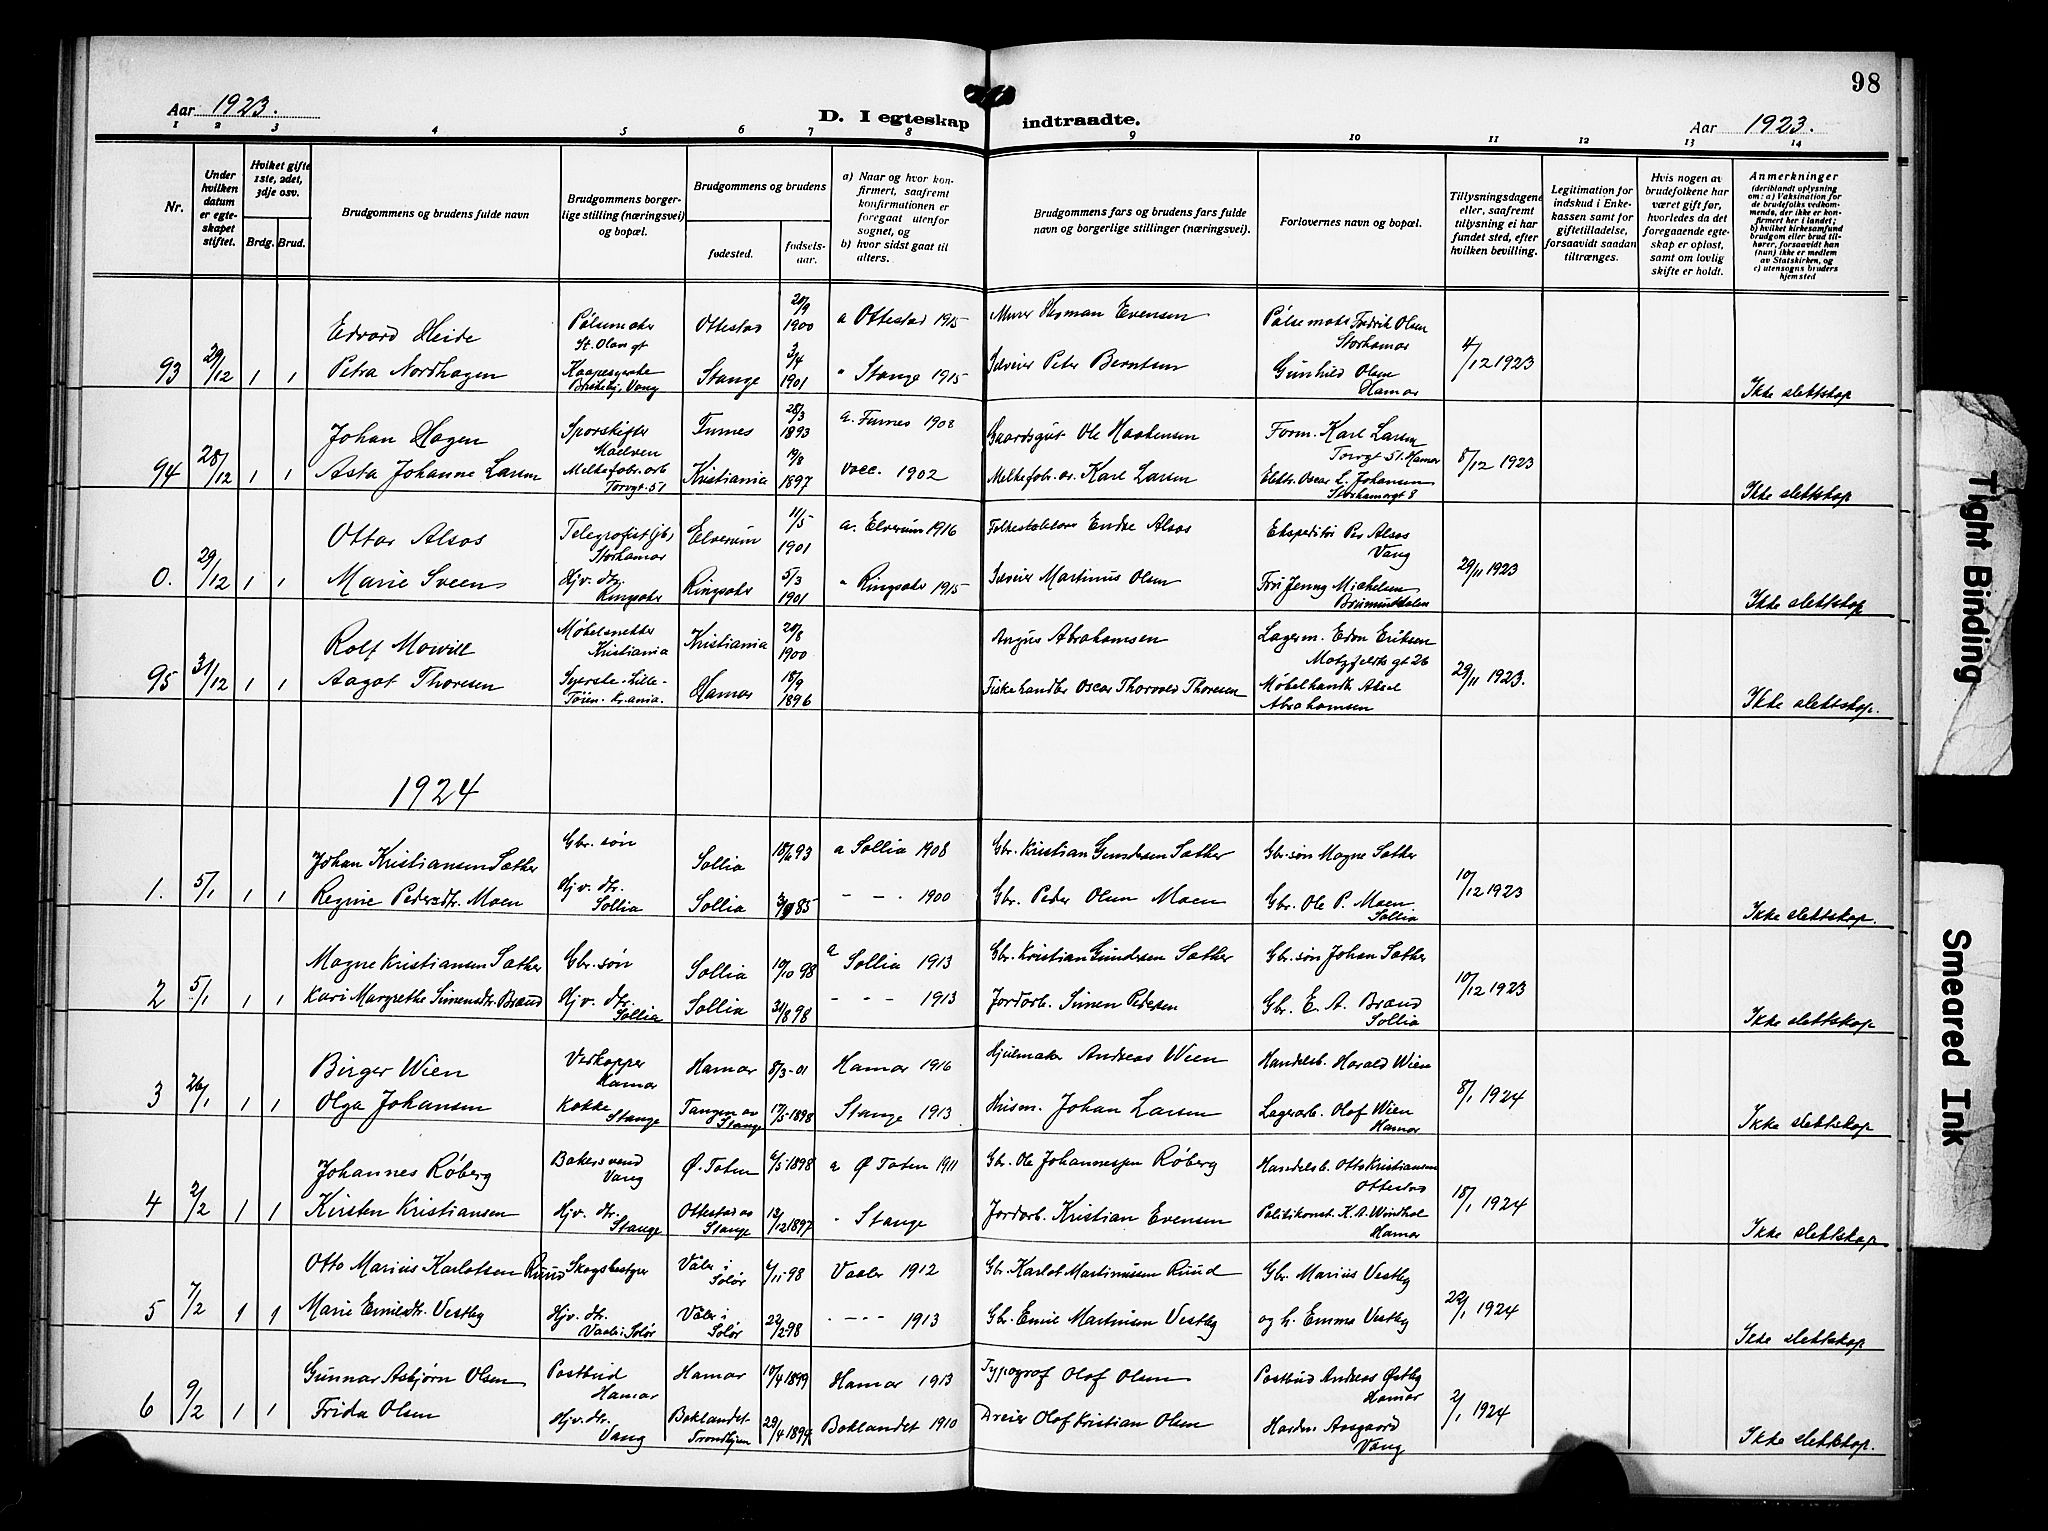 98
Aar 1923.
D. I egteskap indtraadte.
Aar 1923.
1 2 3 4 5 6 7 8 9 10 11 12 13 14
Nr.
Under hvilken datum er egteskapet stiftet.
Hviket gifte 1ste, 2det, 3dje osv.
Brdg. Brud.
Brudgommens og brudens fulde navn
Brudgommens borgerlige stilling (næringsvei) og bopæl.
Brudgommens og brudens
fødested.
fødselsaar.
a) Naar og hvor konfirmert, saafremt konfirmationen er foregaat utenfor sognet, og
b) hvor sidst gaat til alters.
Brudgommens fars og brudens fars fulde navn og borgerlige stillinger (næringsvei).
Forlovernes navn og bopæl.
Tillysningsdagene eller, saafremt tillysning ei har fundet sted, efter hvilken bevilling.
Legitimation for indskud i Enkekassen samt for giftetilladelse, forsaavidt saadan tiltrænges.
Hvis nogen av brudefolkene har været gift før, hvorledes da det foregaaende egteskap er opløst, samt om lovlig skifte er holdt.
Anmerkninger
(deriblandt oplysning om: a) Vaksination for de brudefolks vedkommende, der ikke er konfirmert her i landet; b) hvilket kirkesamfund brudgom eller brud tilhører, forsaavidt han (hun) ikke er medlem av Statskirken, og c) utensogns bruders hjemsted
93 29/12 1 1
Edvard Heide Pølsemaker St. Olavs gt Ottestad 20/9 1900 a Ottestad 1915 Murer Herman Evensen Pølsemak. Fredrik Olsen Storhamar 4/12 1923
Petra Nordhagen Vang Stange 3/4 1901 " Stange 1915 Peter Berntsen Gunhild Olsen Hamar Ikke slektskap
94 28/12 1 1
Johan Hagen Sporskifter Moelven Furnes 28/3 1893 a. Furnes 1908 Gaardsgut Ole Haakensen Form. Karl Larsen Torvgt 51. Hamar 8/12 1923
Asta Johanne Larsen Melkefabr. arb Torvgt. 51 Kristiania 19/8 1897 vacc. 1902 Melkefabr. ar. Karl Larsen Elektr. Oscar L. Johansen Storhamargt 8 Ikke slektskap
0. 29/12 1 1
Ottar Alsos Telegrafist (jb) Storhamar Elverum 11/5 1901 a. Elverum 1916 Endre Alsos Ekspeditør Per Alsos Vang 29/11 1923
Marie Sveen Hjv. dtr. Ringsaker Ringsaker 5/3 1901 " Ringsaker 1915 Martinus Olsen Fru Jenny Mikkelsen Brumunddalen Ikke slektskap
95 31/12 1 1
Rolf Mowill Møbelsnekker Kristiania Kristiania 20/8 1900 Angus Abrahamsen Lagerm. Edvn Eriksen Motzfeldts gt 26 29/11 1923.
Aagot Thoresen Syerske Lille-Tøien. Kr.ania. Hamar 18/9 1896 Fiskehandler Oscar Thorvald Thoresen Møbelhandler Aksel Abrahamsen Ikke slektskap.
1924
1. 5/1 1 1
Johan Kristiansen Sæther Gbr. søn Sollia a Sollia 1908 Gbr. Kristian Gundersen Sæther Gbr.søn Magne Sæther 10/12 1923
Regine Pedersdtr. Moen Hjv. dtr. Sollia Sollia 85 - - . 1900 Gbr. Peder Olsen Moen Gbr. Ole P. Moen. Sollia Ikke slektskap.
2 5/1 1 1
Magne Kristiansen Sæther Gbr. søn Sollia 10/10 98 a Sollia 1913 Gbr. Kristian Gundersen Sæther Gbr. søn Johan Sæther 10/12 1923
Kari Margrethe Simensdtr. Brænd Hjv. dtr. Sollia Sollia 31/8 98 - - - 1913 Jordarb. Simen Pedersen Gbr. E. A. Brænd Sollia Ikke slektskap
3 26/1 1 1
Birger Wien Hamar Hamar 8/3-01 Hamar 1916 Hjulmaker Andreas Wien Handelsb. Harald Wien 8/1 1924
Olga Johansen Kokke Stange Tangen av Stange 17/5-1898 Stange 1913 Husm. Johan Larsen Lagerarb. Olof Wien Hamar Ikke slektskap
4 2/2 1 1
Johannes Røberg Bakersvend Vang Ø. Toten 6/5-1898 a Ø Toten 1911 Gbr. Ole Johannessen Røberg Handelsb. Otto Kristiansen Ottestad 18/1 1924
Kirsten Kristiansen Hjv. dtr. Stange Ottestad av Stange 12/12 1897 " Stange Jordarb. Kristian Evensen Politikonst. K. A. Windhol Hamar Ikke slektskap
5 7/2 1 1
Otto Marius Karlotsen Ruud Skogbestyrer Våler i Solør 6/11-98 Vaaler 1912 Gbr. Karlot Martinusen Ruud Gbr. Marius Vestby 22/1 1924
Marie Emilsdtr. Vestby Hjv. dtr. Vaaler i Solør Våler i Solør 22/2 98 . - - - 1913 Gbr. Emil Martinsen Vestby og h. Emma Vestby Ikke slektskap
6 9/2 1 1
Gunnar Asbjørn Olsen Postbud Hamar Hamar 10/4 1899 Hamar 1913 Typograf Olof Olsen Postbud Andreas Østby Hamar 2/1 1924
Frida Olsen Hjv. dtr. Vang Baklandet Trondhjem 29/4 Baklandet 1910 Dreier Olof Kristian Olsen Aasgaard Vang Ikke slektskap.
Tight Binding
Smeared Ink